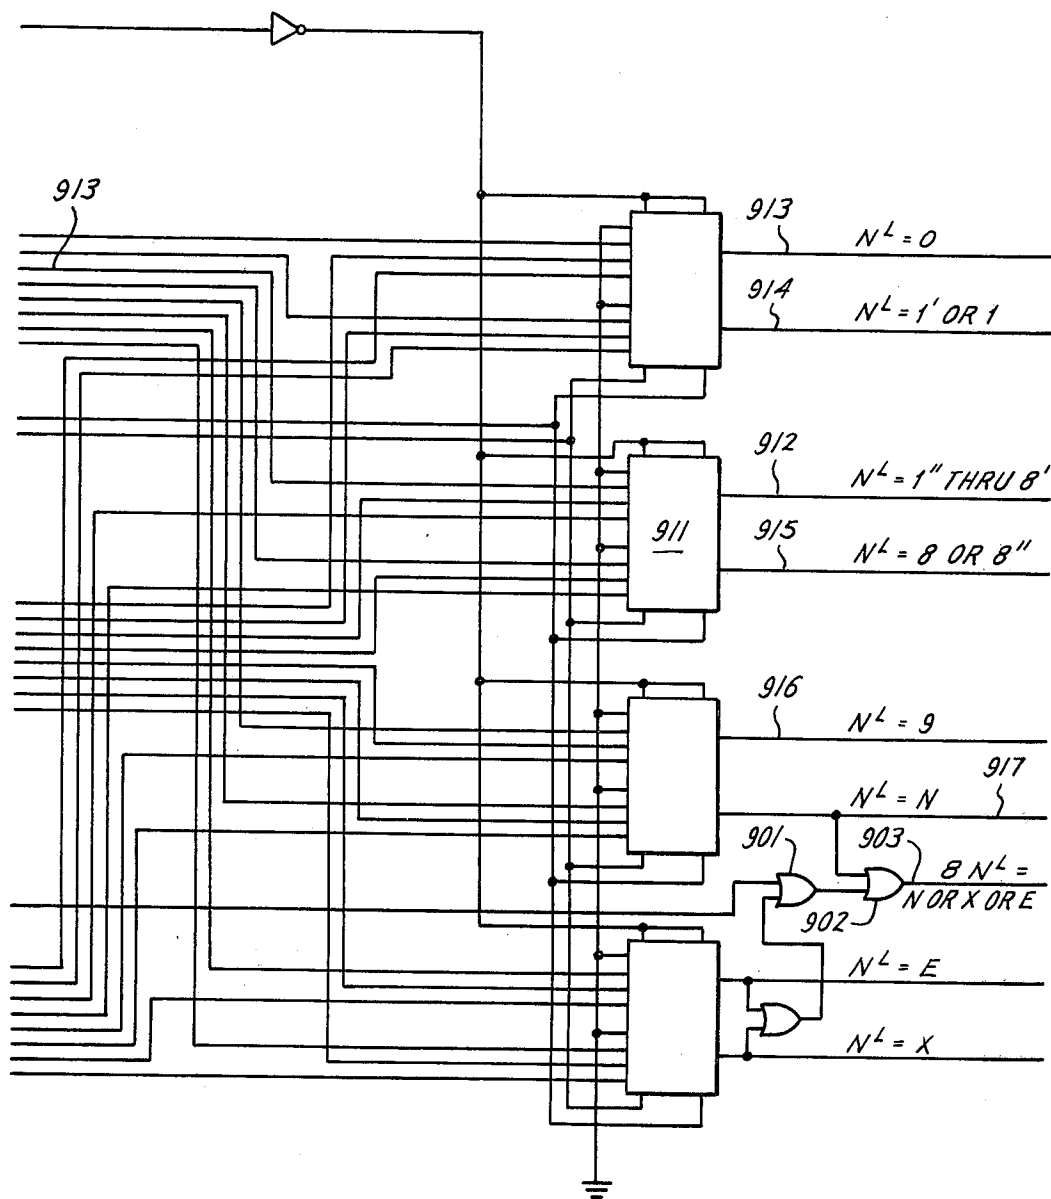 913
913
Nᴸ = 0
914
Nᴸ = 1' OR 1
912
Nᴸ = 1" THRU 8'
911
915
Nᴸ = 8 OR 8"
916
Nᴸ = 9
917
Nᴸ = N
901
903
8 Nᴸ =
N OR X OR E
902
Nᴸ = E
Nᴸ = X